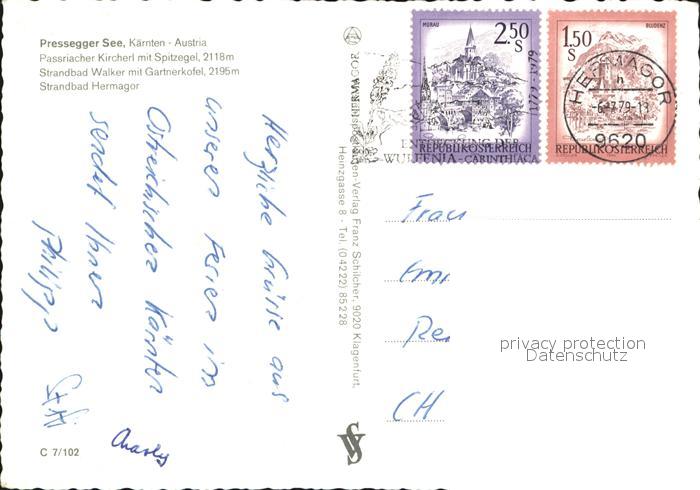 Pressegger See, Kärnten - Austria
Passriacher Kircherl mit Spitzegel, 2118m
Strandbad Walker mit Gartnerkofel, 2195m
Strandbad Hermagor
Herzliche Grüsse aus
unseren Ferien im
Östreichischen Kärnten
sendet Ihnen
Philipp
Charly
C 7/102
HERMAGOR
Verlag Franz Schilcher, 9020 Klagenfurt,
Heinzgasse 8 - Tel. (04222) 85228
MURAU
2.50
S
REPUBLIK ÖSTERREICH
BLUDENZ
1.50
S
REPUBLIK ÖSTERREICH
1779-1979
ENTDECKUNG DER
WULFENIA-CARINTHIACA
HERMAGOR
h
-6.-7.79-13
9620
Frau
Em
Re
CH
privacy protection
Datenschutz